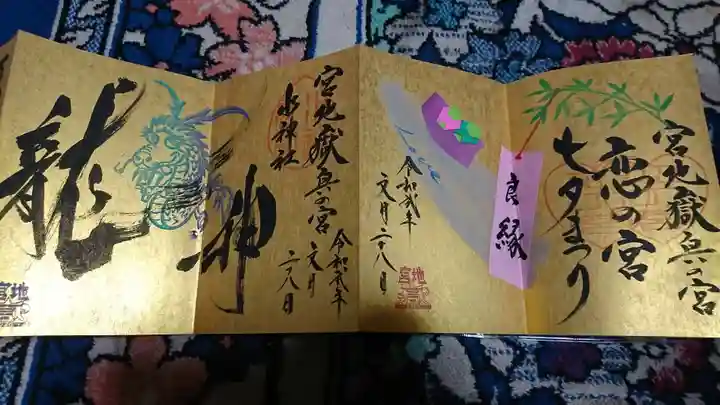 宮地嶽奥の宮
恋の宮
七夕まつり
良縁
令和弐年
文月二十八日
宮地嶽奥の宮
水神社
令和弐年
文月
二十八日
龍神